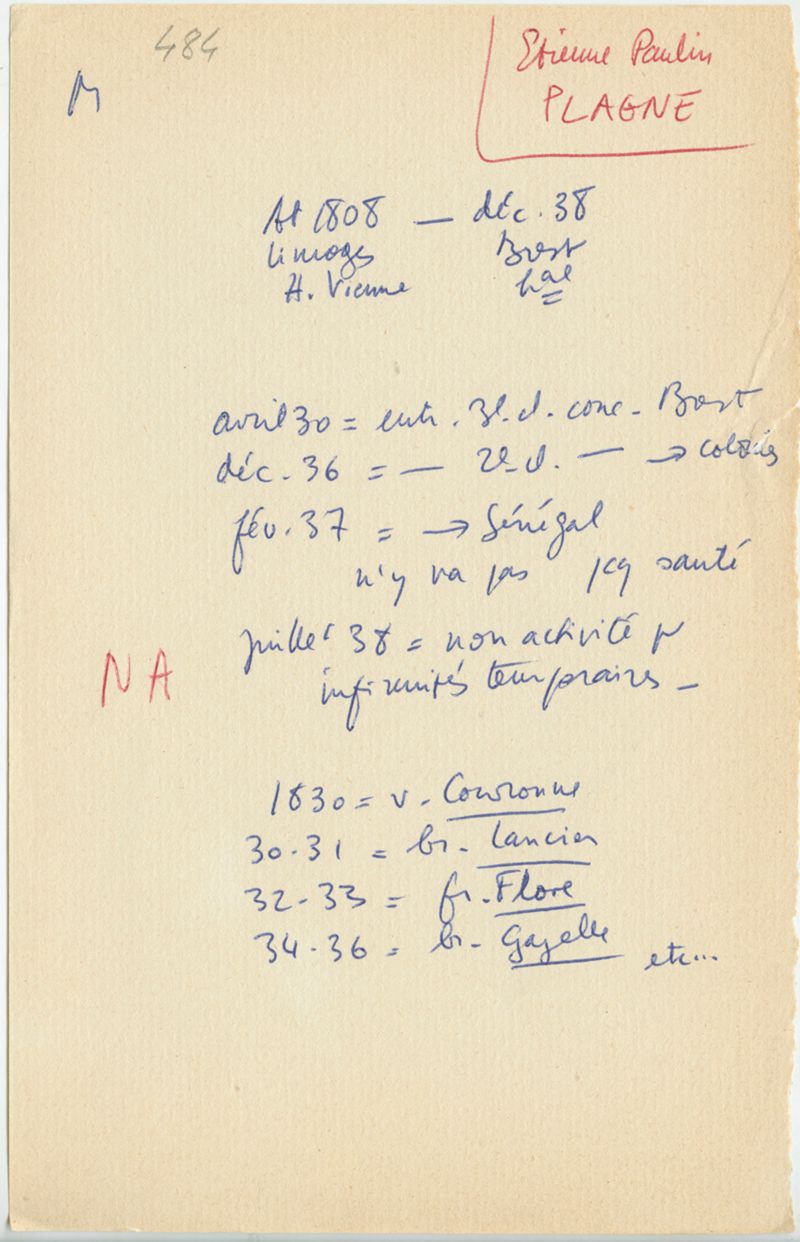 484
M
Etienne Paulin
PLAGNE
At 1808 — déc. 38
Limoges Brest
H. Vienne hal
avril 30 = entr. 3e cl. conc. Brest
déc. 36 = — 2e cl. — → colonies
fév. 37 = → Sénégal
n'y va pas pcq santé
juillet 38 = non activité pr
infirmités temporaires -
NA
1830 = v. Couronne
30-31 = br. Lancier
32-33 = fr. Flore
34-36 = br. Gazelle etc...